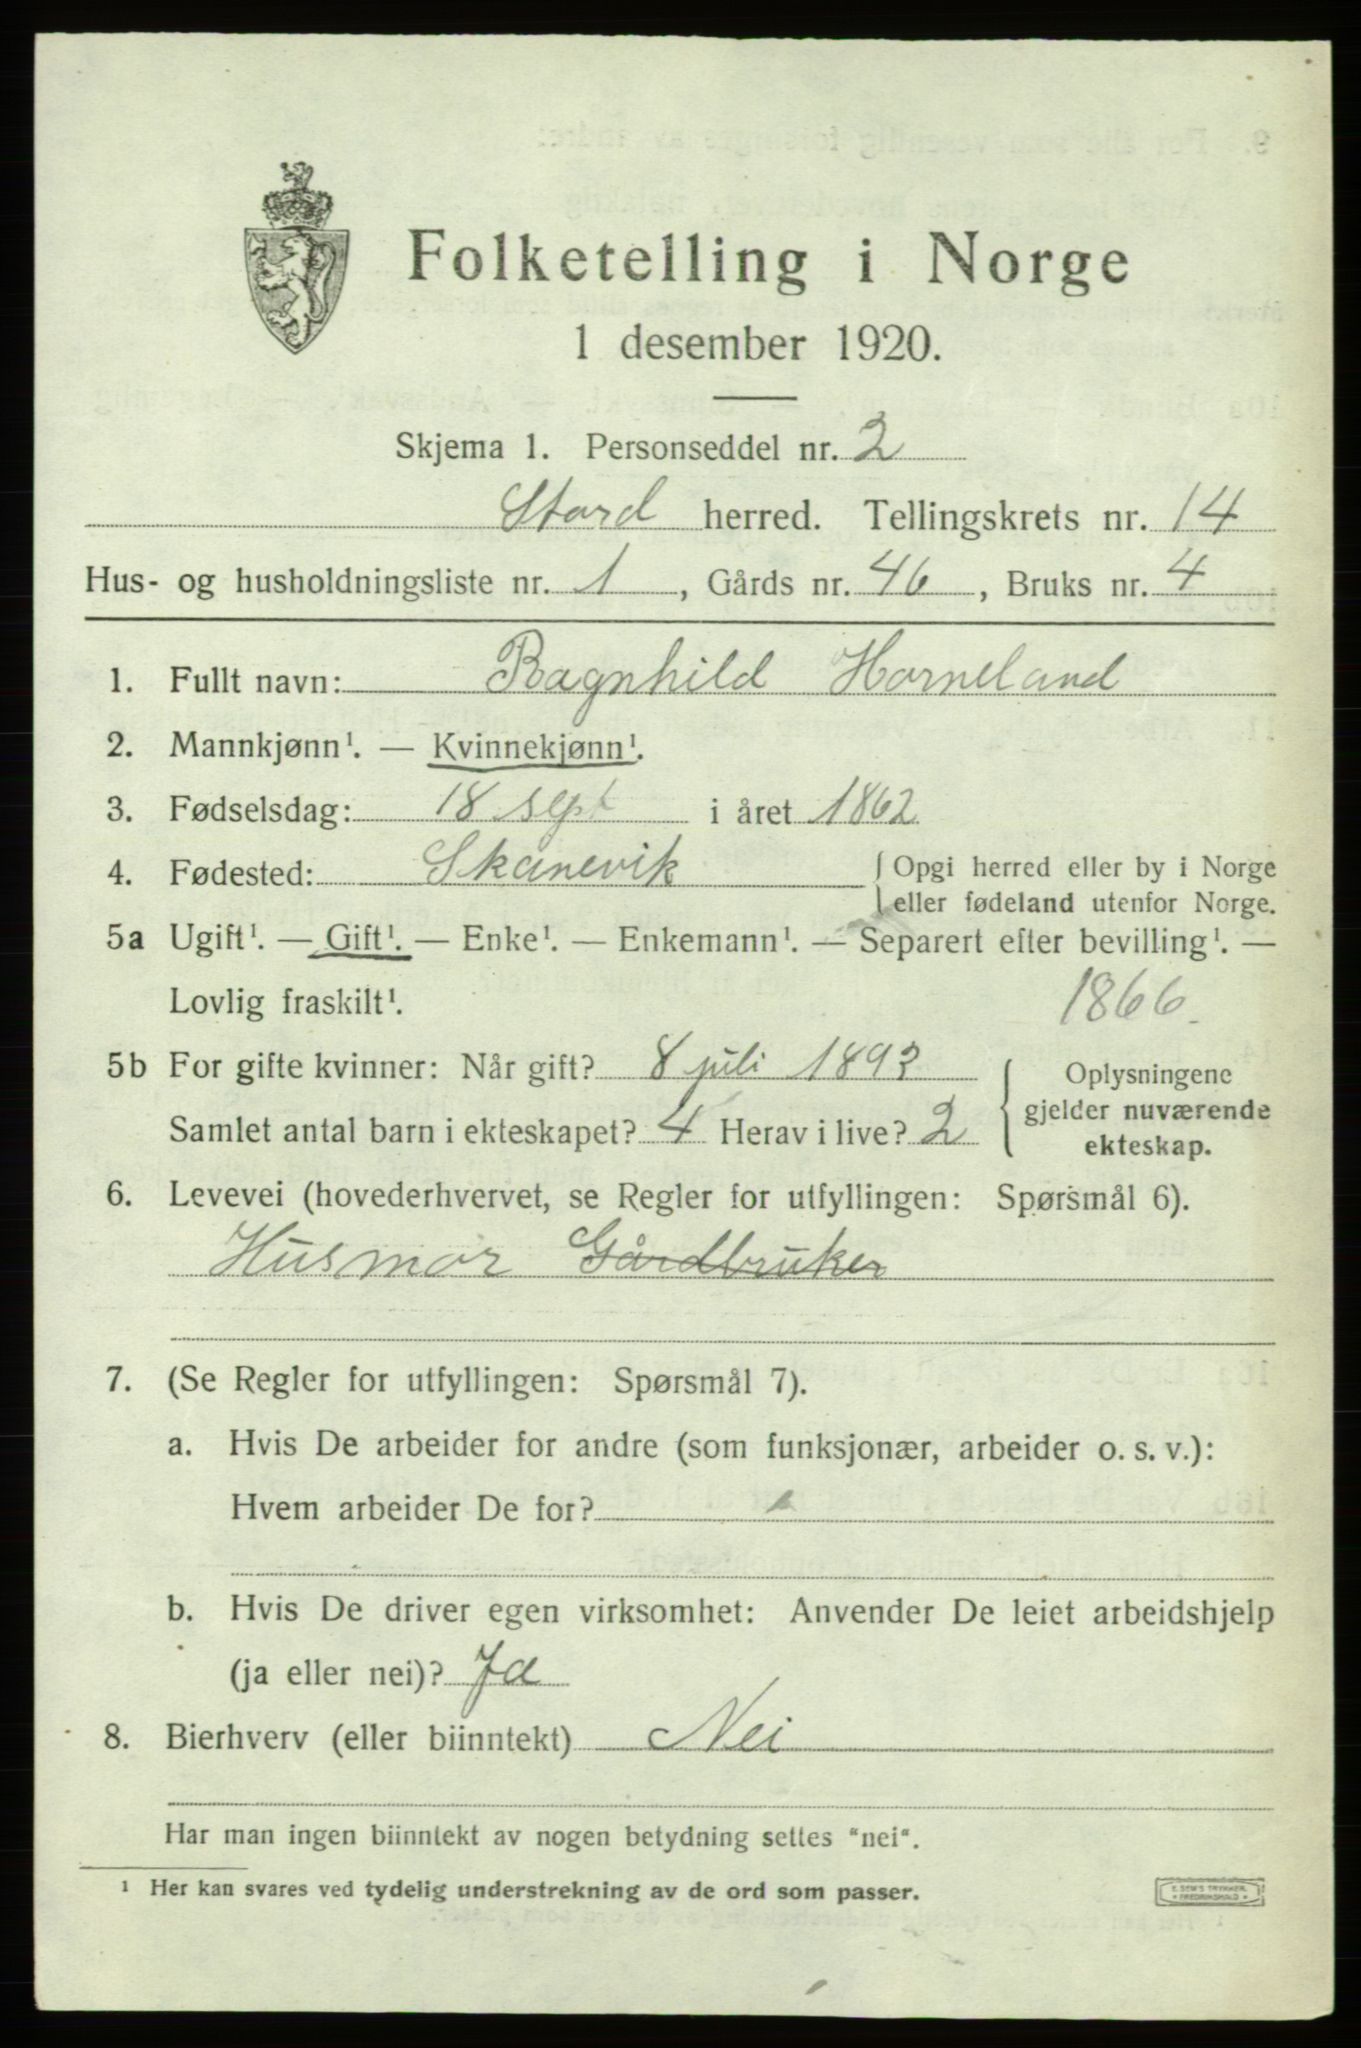 Folketelling i Norge
1 desember 1920.
Skjema 1. Personseddel nr. 2
Stord herred. Tellingskrets nr. 14
Hus- og husholdningsliste nr. 1, Gårds nr. 46, Bruks nr. 4
1. Fullt navn: Ragnhild Horneland
2. Mannkjønn¹. — Kvinnekjønn¹.
3. Fødselsdag: 18 sept i året 1862
4. Fødested: Skånevik { Opgi herred eller by i Norge
eller fødeland utenfor Norge.
5a Ugift¹. — Gift¹. — Enke¹. — Enkemann¹. — Separert efter bevilling¹. —
Lovlig fraskilt¹. 1866.
5b For gifte kvinner: Når gift? 8 juli 1893
Samlet antal barn i ekteskapet? 4 Herav i live? 2
{ Oplysningene
gjelder nuværende
ekteskap.
6. Levevei (hovederhvervet, se Regler for utfyllingen: Spørsmål 6).
Husmor Gårdbruker
7. (Se Regler for utfyllingen: Spørsmål 7).
a. Hvis De arbeider for andre (som funksjonær, arbeider o. s. v.):
Hvem arbeider De for?
b. Hvis De driver egen virksomhet: Anvender De leiet arbeidshjelp
(ja eller nei)? Ja
8. Bierhverv (eller biinntekt) Nei
Har man ingen biinntekt av nogen betydning settes "nei".
¹ Her kan svares ved tydelig understrekning av de ord som passer.
E. SEM'S TRYKKERI
FREDRIKSHALD